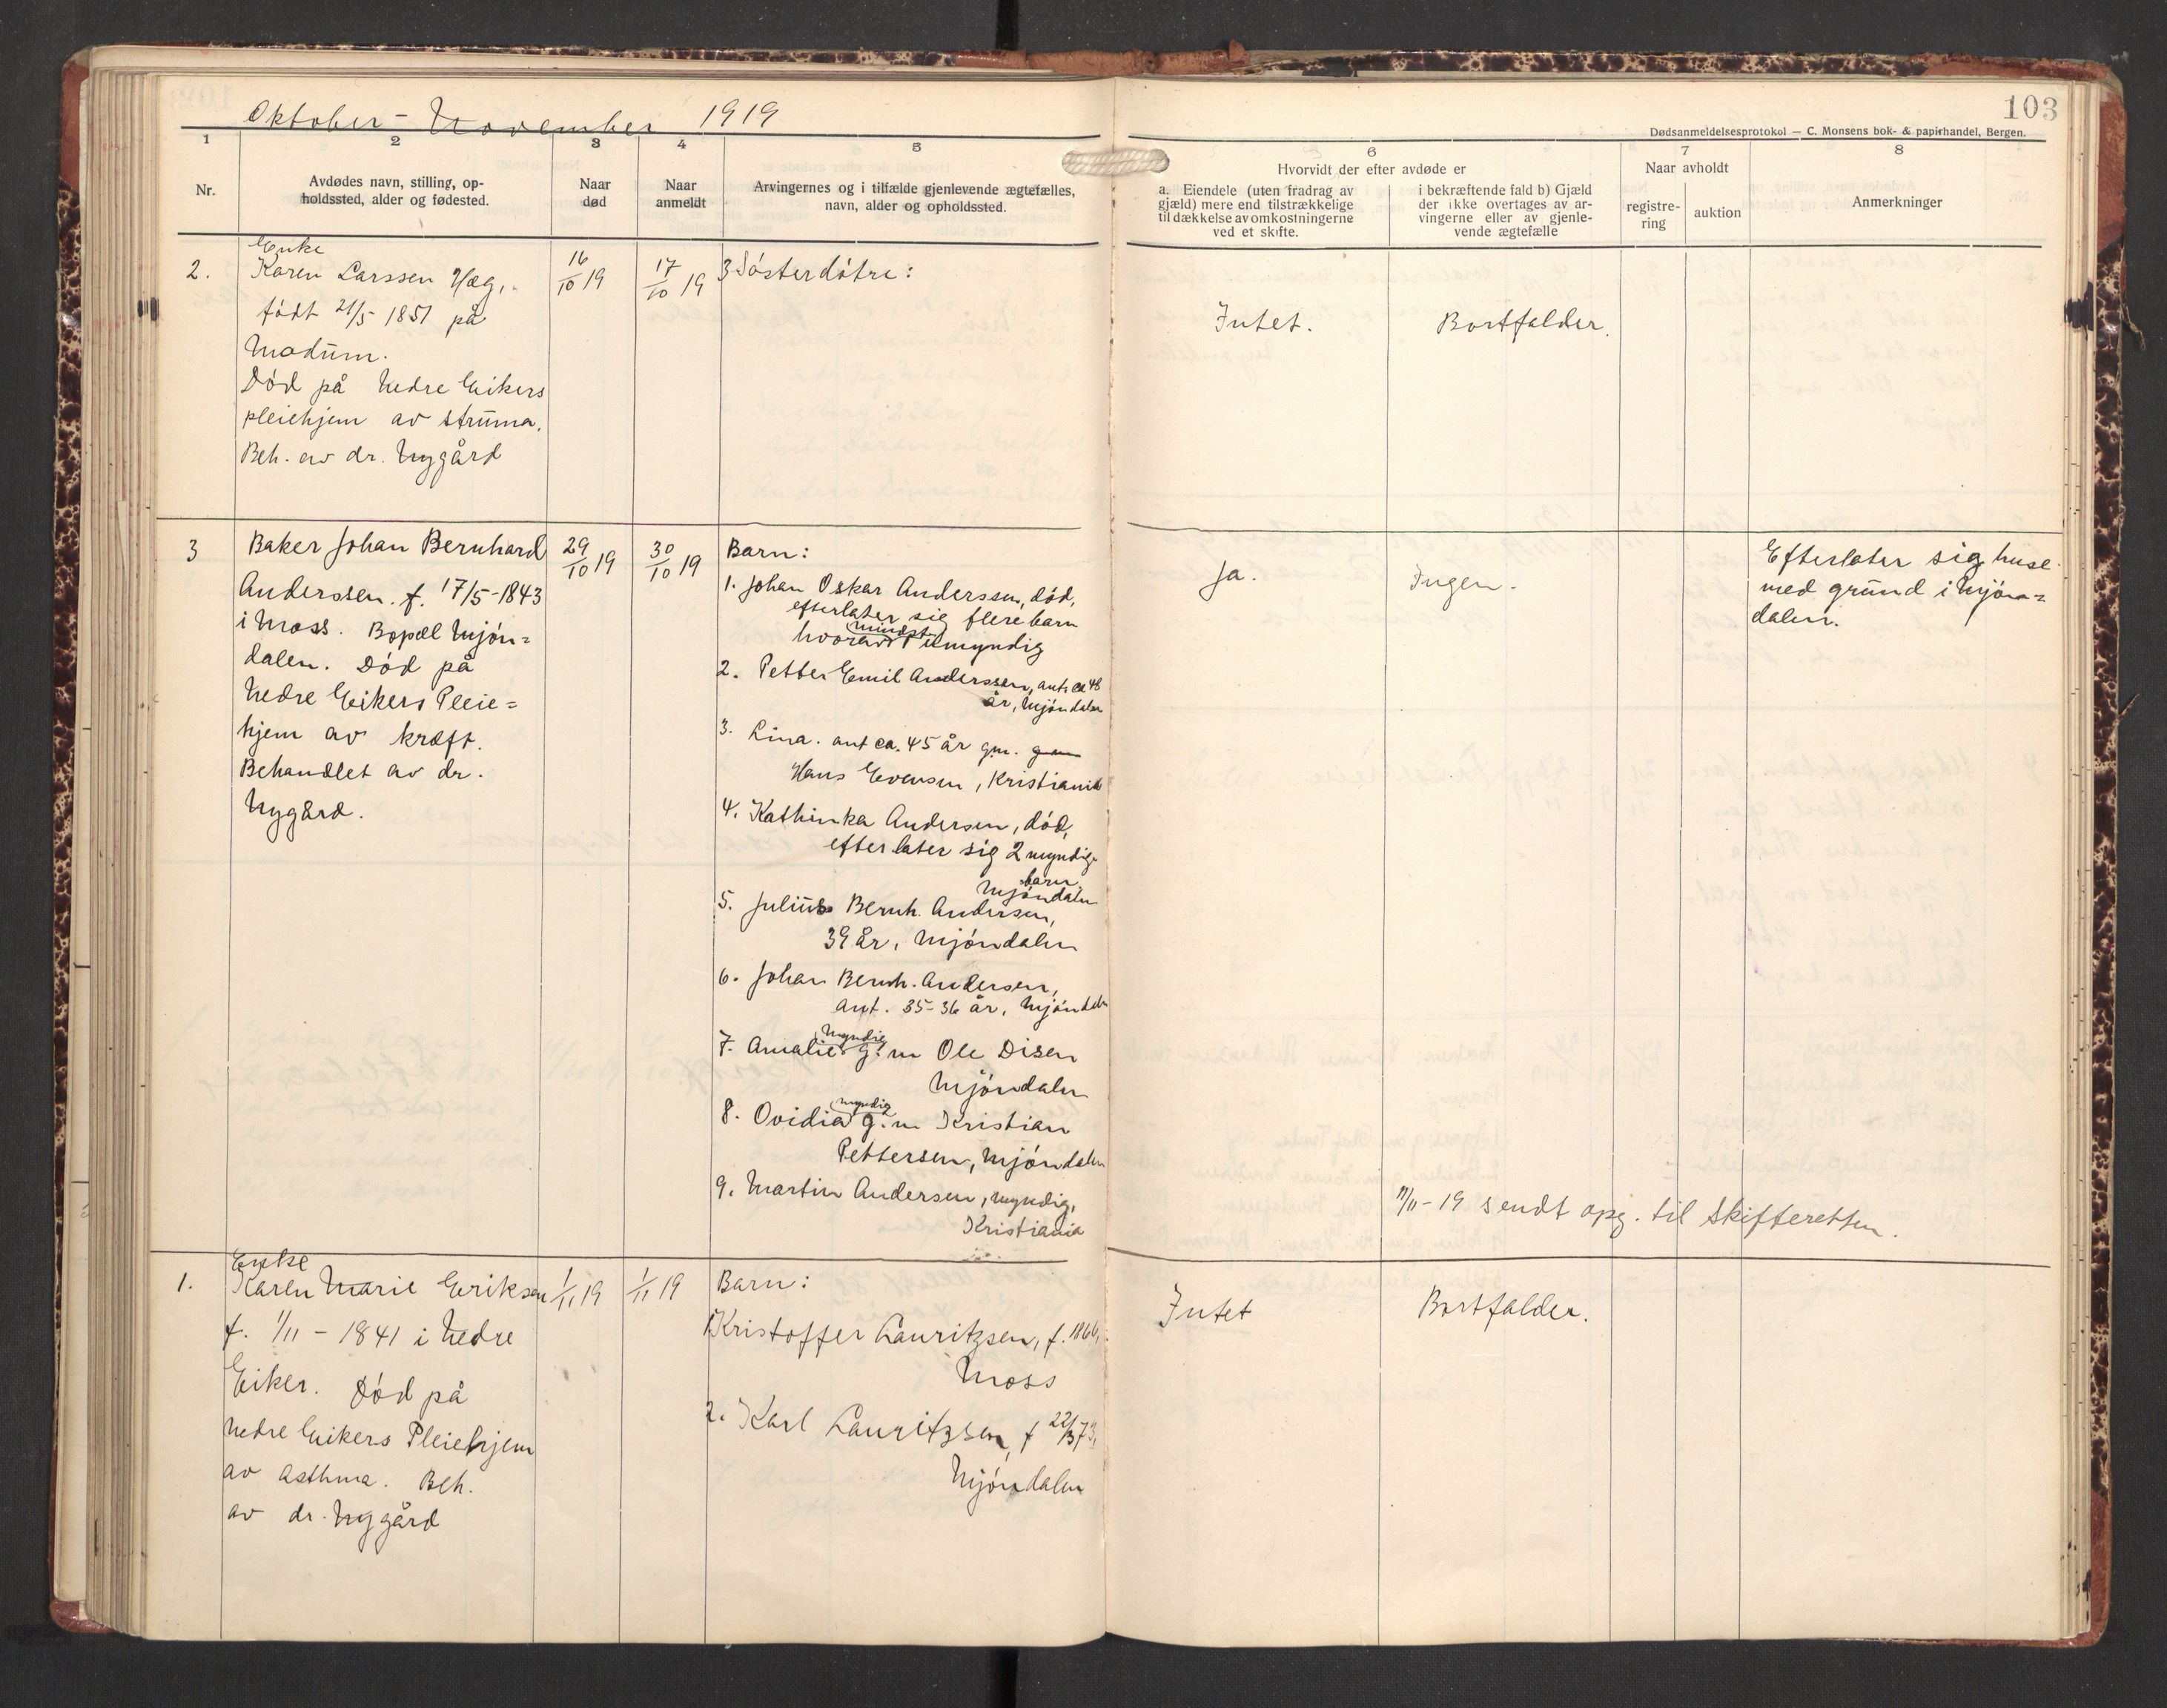 Oktober - November 1919
103
Dødsanmeldelsesprotokol — C. Monsens bok- & papirhandel, Bergen.
1
2
3
4
5
6
7
8
Nr.
Avdødes navn, stilling, op-
holdssted, alder og fødested.
Naar
død
Naar
anmeldt
Arvingernes og i tilfælde gjenlevende ægtefælles,
navn, alder og opholdssted.
Hvorvidt der efter avdøde er
a. Eiendele (uten fradrag av
gjæld) mere end tilstrækkelige
til dækkelse av omkostningerne
ved et skifte.
i bekræftende fald b) Gjæld
der ikke overtages av ar-
vingerne eller av gjenle-
vende ægtefælle
Naar avholdt
registre-
ring
auktion
Anmerkninger
2.
Enke
Karen Larssen Hæg,
født 21/5 1851 på
Modum.
Død på Nedre Eikers
pleiehjem av struma.
Beh. av dr. Nygård
16/10 19
17/10 19
3 Søsterdøtre:
Intet.
Bortfalder.
3
Baker Johan Bernhard
Anderssen. f. 17/5-1843
i Moss. Bopæl Mjøn=
dalen. Død på
Nedre Eikers Pleie=
hjem av kræft.
Behandlet av dr.
Nygård.
29/10 19
30/10 19
Barn:
1. Johan Oskar Anderssen, død,
efterlater sig flere barn
mindst
hvorav 1 umyndig
2. Petter Emil Anderssen, ant ca 48
år, Mjøndalen
3. Lina. ant ca. 45 år gm.
Hans Evensen, Kristiania
4. Kathinka Andersen, død,
efterlater sig 2 myndige
barn,
Mjøndalen
5. Julius Bernh. Andersen,
39 år, Mjøndalen
6. Johan Bernh. Andersen,
ant. 35-36 år, Mjøndalen
myndig
7. Amalie g.m Ole Disen
Mjøndalen
myndig
8. Ovidia g.m Kristian
Pettersen, Mjøndalen
9. Martin Andersen, myndig,
Kristiania
Ja.
Ingen.
Efterlater sig huse
med grund i Mjøn=
dalen.
11/11-19 sendt opg. til Skifteretten.
1.
Enke
Karen Marie Eriksen
f. 1/11 - 1841 i Nedre
Eiker. Død på
Nedre Eikers Pleiehjem
av Asthma. Beh.
av dr. Nygård
1/11 19
1/11 19
Barn:
1. Kristoffer Lauritzsen, f. 1866,
Moss
2. Karl Lauritzsen, f 22/3 73,
Mjøndalen
Intet
Bortfalder.